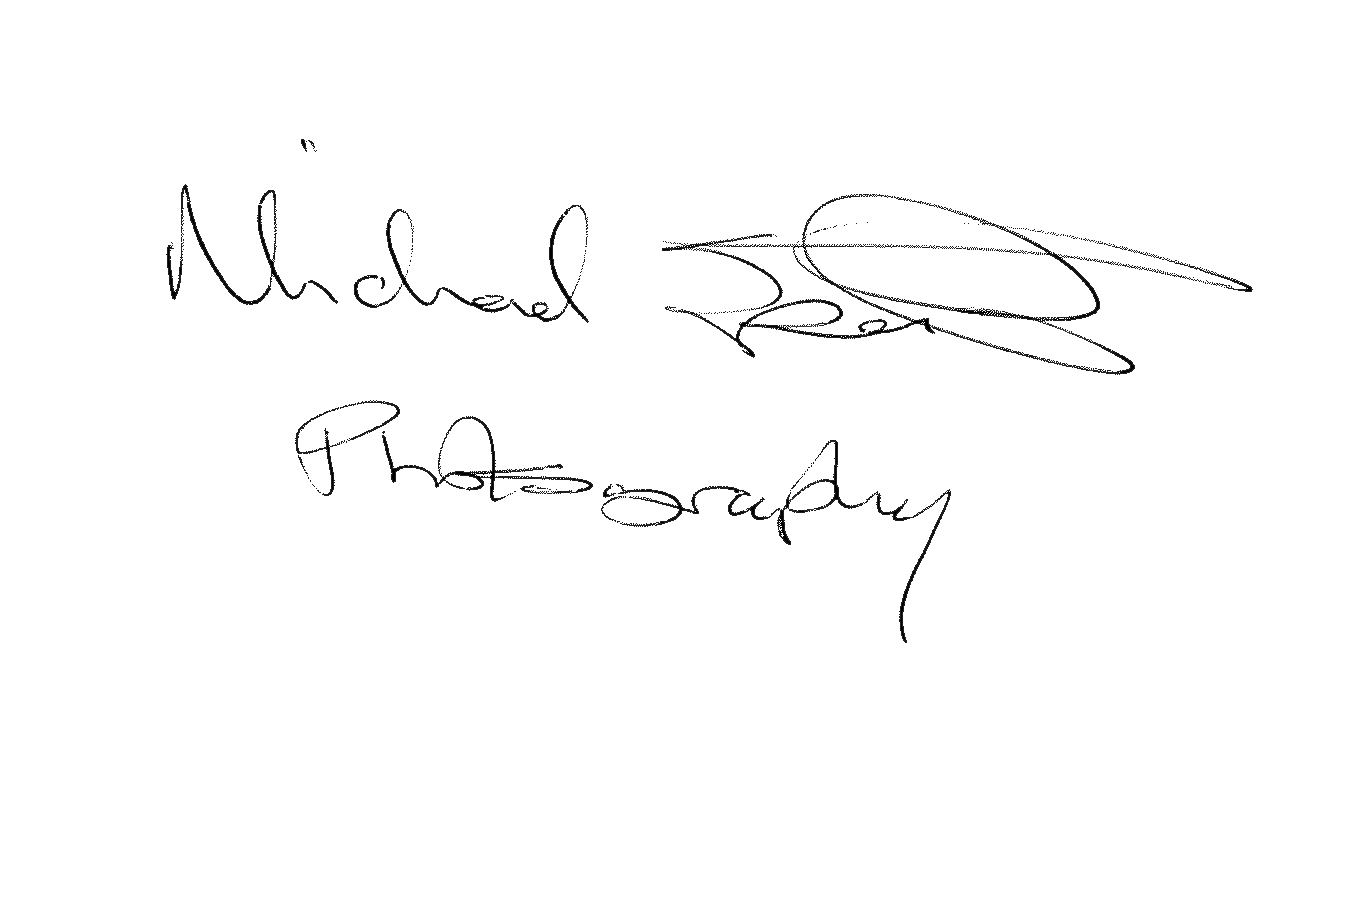 Michael
Photography